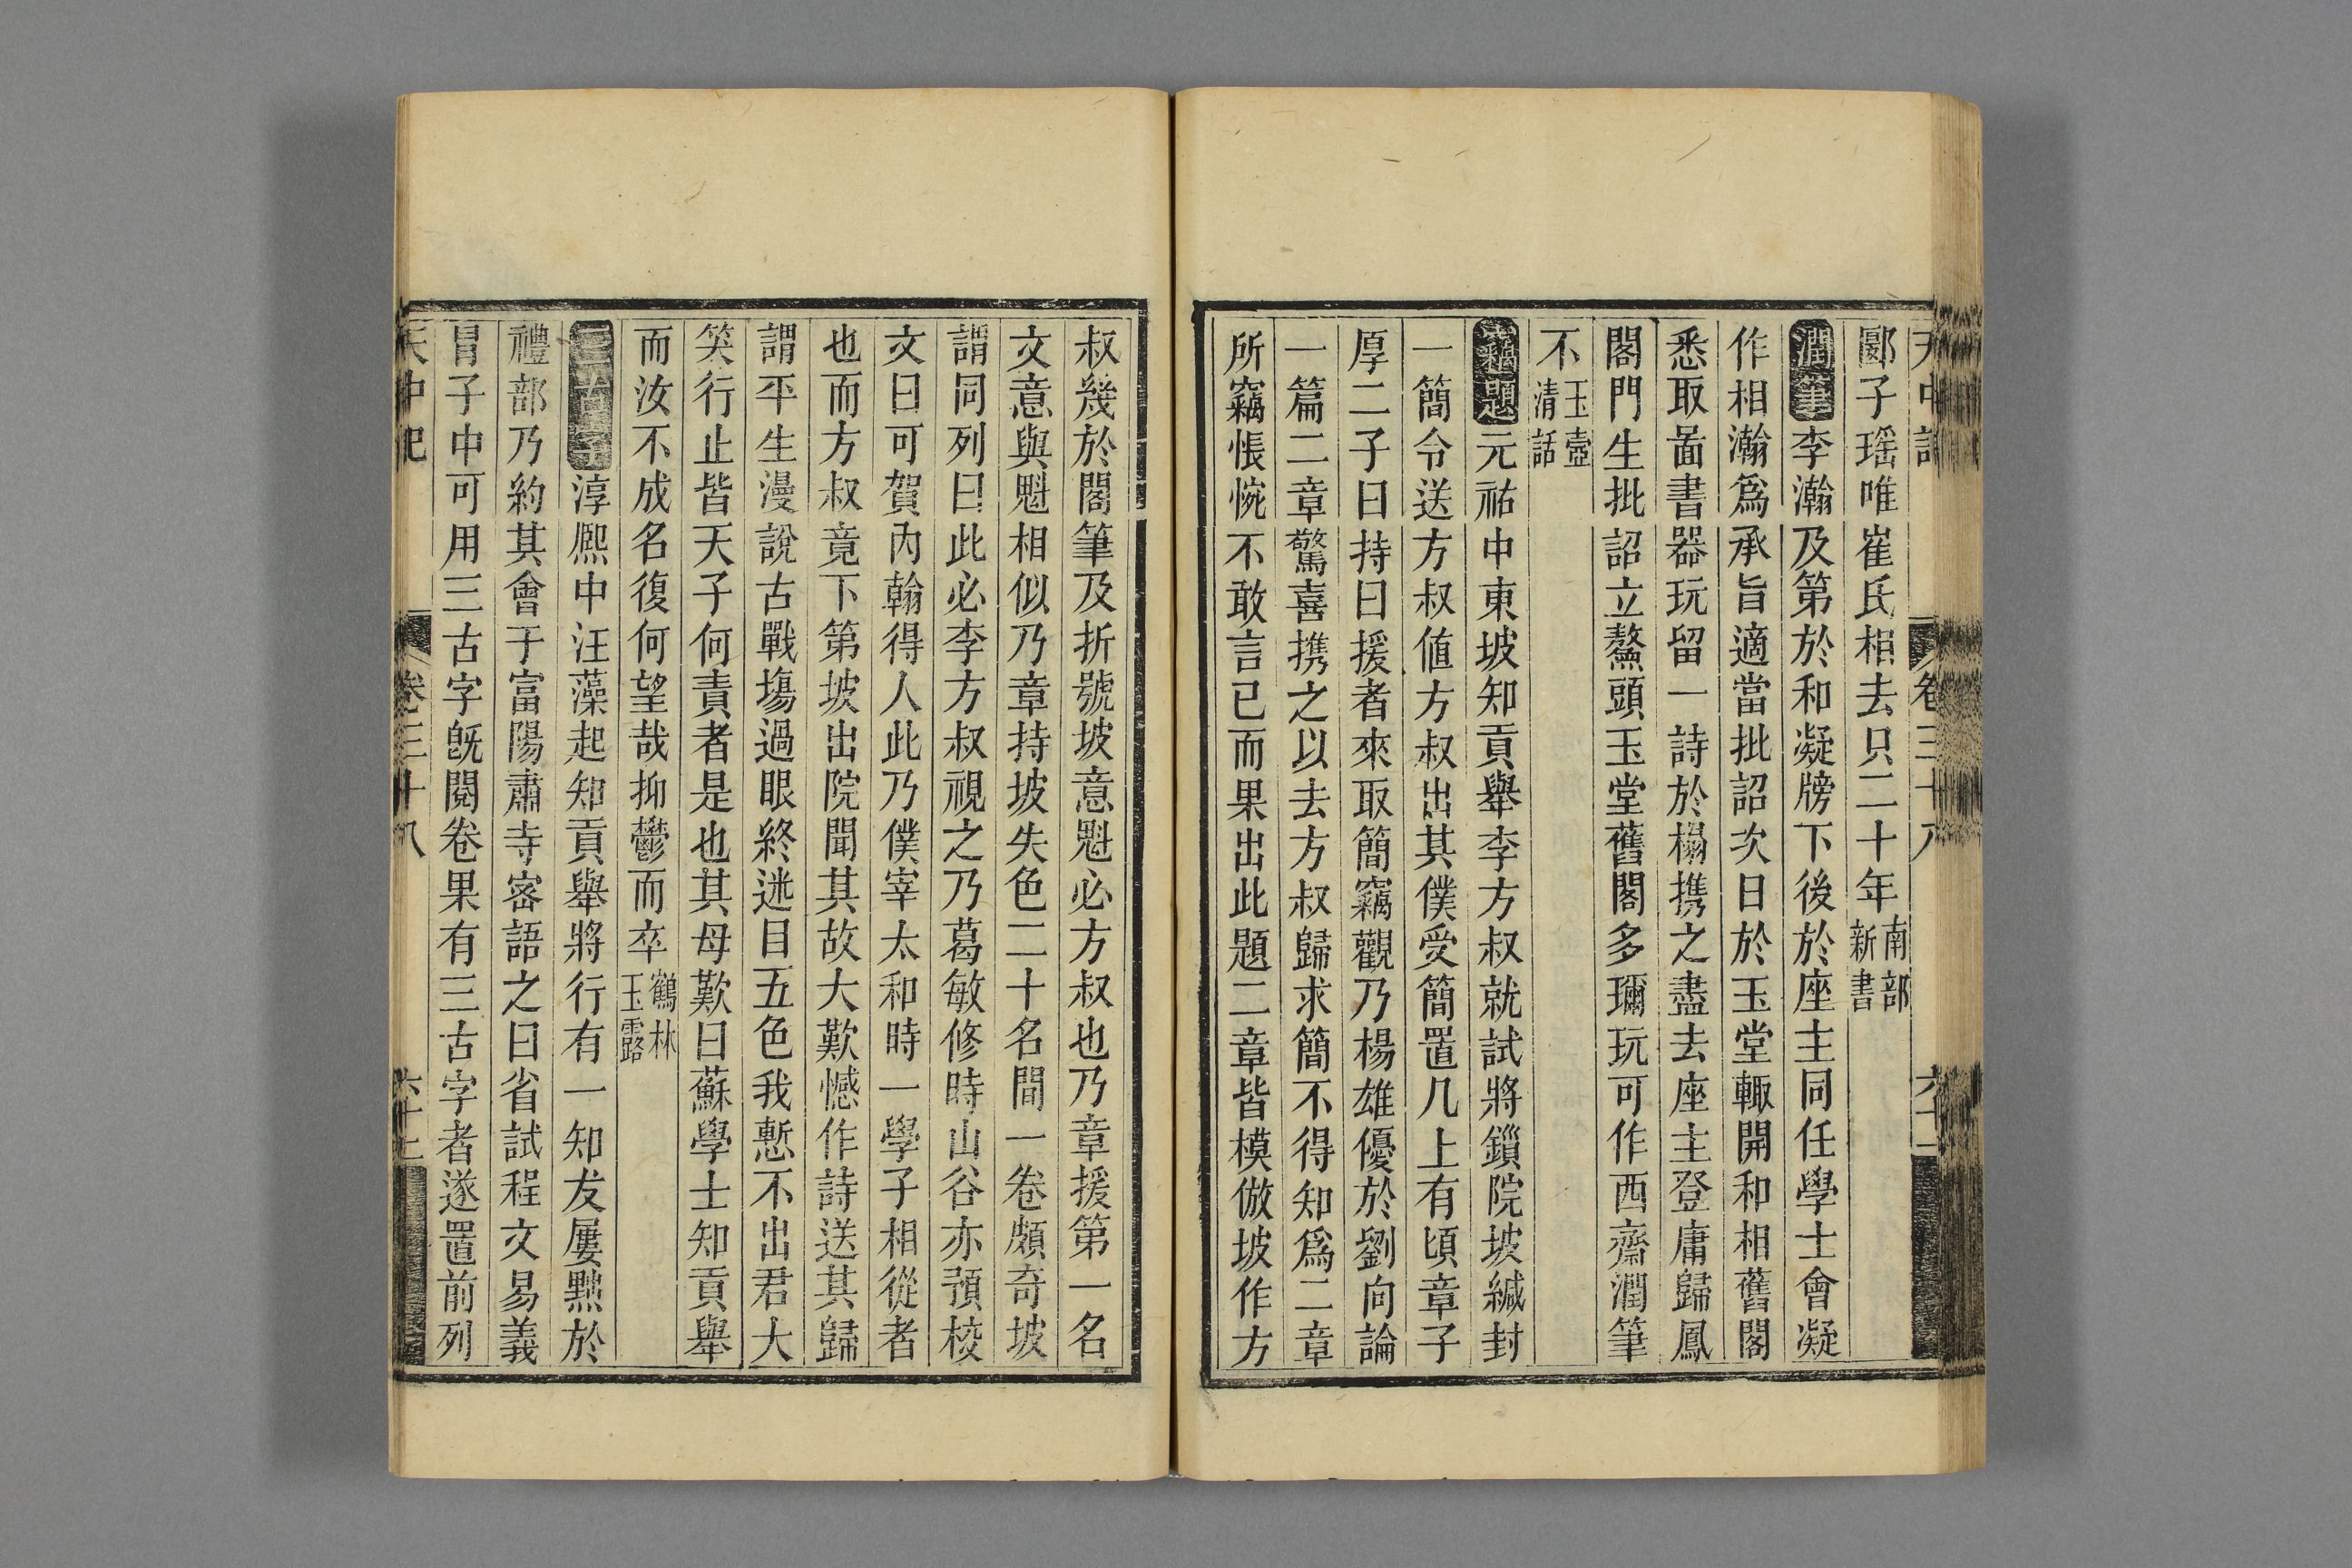 酈子瑶唯崔氏相去只二十年南部新書
潤筆李瀚及第於和凝牓下後於座主同任學士會凝
作相瀚爲承旨適當批詔次日於玉堂輙開和相舊閣
悉取啚書器玩留一詩於榻携之盡去座主登庸歸鳳
閣門生批詔立鰲頭玉堂舊閣多珎玩可作西齋潤筆
不玉壺清話
竊題元祐中東坡知貢舉李方叔就試將鎖院坡緘封
一簡令送方叔值方叔出其僕受簡置几上有頃章子
厚二子曰持曰援者來取簡竊觀乃楊雄優於劉向論
一篇二章驚喜携之以去方叔歸求簡不得知爲二章
所竊悵惋不敢言已而果出此題二章皆模倣坡作方
叔幾於閣筆及折號坡意魁必方叔也乃章援第一名
文意與魁相似乃章持坡失色二十名間一卷頗奇坡
謂同列曰此必李方叔視之乃葛敏修時山谷亦預校
文曰可賀內翰得人此乃僕宰太和時一學子相從者
也而方叔竟下第坡出院聞其故大歎憾作詩送其歸
謂平生漫說古戰塲過眼終迷目五色我慙不出君大
笑行止皆天子何責者是也其母歎曰蘇學士知貢舉
而汝不成名復何望哉抑鬱而卒鶴林玉露
三古字淳熈中汪藻起知貢舉將行有一知友屢黜於
禮部乃約其會于富陽肅寺密語之曰省試程文易義
冒子中可用三古字旣閱卷果有三古字者遂置前列
天中記 卷三十八